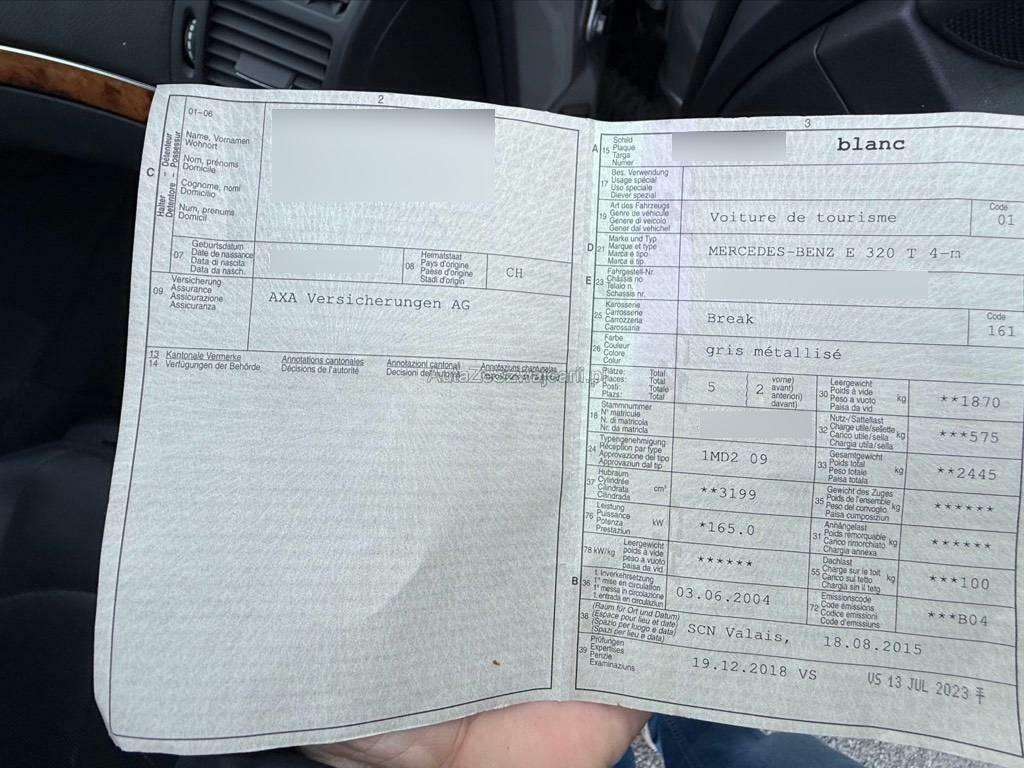 2
01-06
Halter - Détenteur
Detentore - Possessur
C
Name, Vornamen
Wohnort
Nom, prénoms
Domicile
Cognome, nomi
Domicilio
Num, prenums
Domicil
07
Geburtsdatum
Date de naissance
Data di nascita
Data da nasch.
08
Heimatstaat
Pays d'origine
Paese d'origine
Stadi d'origin
CH
09
Versicherung
Assurance
Assicurazione
Assicuranza
AXA Versicherungen AG
13 Kantonale Vermerke Annotations cantonales Annotazioni cantonali Annotaziuns chantunalas
14 Verfügungen der Behörde Décisions de l'autorité Decisioni dell'autorità
3
A 15
Schild
Plaque
Targa
Numer
blanc
17
Bes. Verwendung
Usage spécial
Uso speciale
Diever spezial
19
Art des Fahrzeugs
Genre de véhicule
Genere di veicolo
Gener dal vehichel
Voiture de tourisme
Code
01
D 21
Marke und Typ
Marque et type
Marca e tipo
Marca e tip
MERCEDES-BENZ E 320 T 4-m
E 23
Fahrgestell-Nr.
Châssis no
Telaio n.
Schassis nr.
25
Karosserie
Carrosserie
Carrozzeria
Carossaria
Break
Code
161
26
Farbe
Couleur
Colore
Colur
gris métallisé
Plätze: Total
Places: Total
Posti: Totale
Plazs: Total
5
2
vorne)
avant)
anteriori)
davant)
30
Leergewicht
Poids à vide
Peso a vuoto
Paisa da vid
kg
**1870
18
Stammnummer
N° matricule
N. di matricola
Nr. da matricla
32
Nutz-/Sattellast
Charge utile/sellette
Carico utile/sella
Chargia utila/sella
kg
***575
24
Typengenehmigung
Réception par type
Approvazione del tipo
Approvaziun dal tip
1MD2 09
33
Gesamtgewicht
Poids total
Peso totale
Paisa totala
kg
**2445
37
Hubraum
Cylindrée
Cilindrata
Cilindrada
cm³
**3199
35
Gewicht des Zuges
Poids de l'ensemble
Peso del convoglio
Paisa cumposiziun
kg
******
76
Leistung
Puissance
Potenza
Prestaziun
kW
*165.0
31
Anhängelast
Poids remorquable
Carico rimorchiato
Chargia annexa
kg
******
78 kW/kg
Leergewicht
poids à vide
peso a vuoto
paisa da vid
******
55
Dachlast
Charge sur le toit
Carico sul tetto
Chargia sin il tetg
kg
***100
B 36
1. Inverkehrsetzung
1re mise en circulation
1a messa in circolazione
1. entrada en circulaziun
03.06.2004
72
Emissionscode
Code émissions
Codice emissioni
Code d'emissiuns
***B04
38
(Raum für Ort und Datum)
(Espace pour lieu et date)
(Spazio per luogo e data)
(Spazi per lieu e data)
SCN Valais, 18.08.2015
39
Prüfungen
Expertises
Perizie
Examinaziuns
19.12.2018 VS
VS 13 JUL 2023